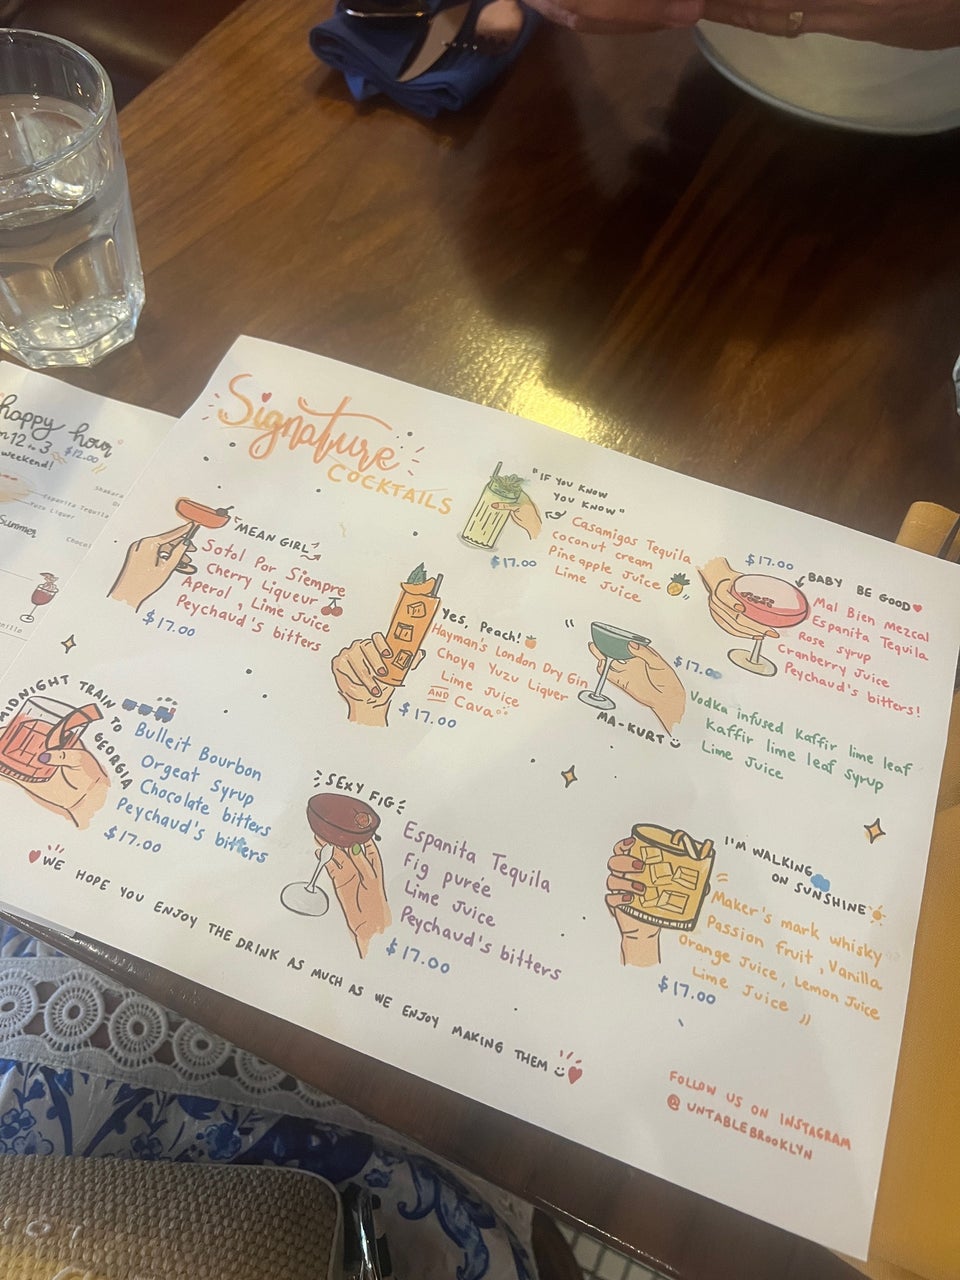 Signature
COCKTAILS
MEAN GIRL
Sotol Por Siempre
Cherry Liqueur
Aperol, Lime Juice
Peychaud's bitters
$17.00
"IF YOU KNOW
YOU KNOW"
Casamigos Tequila
coconut cream
Pineapple Juice
Lime Juice
$17.00
$17.00
BABY BE GOOD
Mal Bien Mezcal
Espanita Tequila
Rose syrup
Cranberry Juice
Peychaud's bitters!
Yes, Peach!
Hayman's London Dry Gin
Choya Yuzu Liquer
Lime Juice
AND Cava
$17.00
MA-KURT
$17.00
Vodka infused Kaffir lime leaf
Kaffir lime leaf syrup
Lime Juice
MIDNIGHT TRAIN TO GEORGIA
Bulleit Bourbon
Orgeat Syrup
Chocolate bitters
Peychaud's bitters
$17.00
SEXY FIG
Espanita Tequila
Fig purée
Lime Juice
Peychaud's bitters
$17.00
I'M WALKING
ON SUNSHINE
Maker's mark whisky
Passion fruit, Vanilla
Orange Juice, Lemon Juice
Lime Juice
$17.00
WE HOPE YOU ENJOY THE DRINK AS MUCH AS WE ENJOY MAKING THEM
FOLLOW US ON INSTAGRAM
@UNTABLEBROOKLYN
happy hour
12 to 3 $12.00
weekend!
Espanita Tequila
Yuzu Liquer
Summer